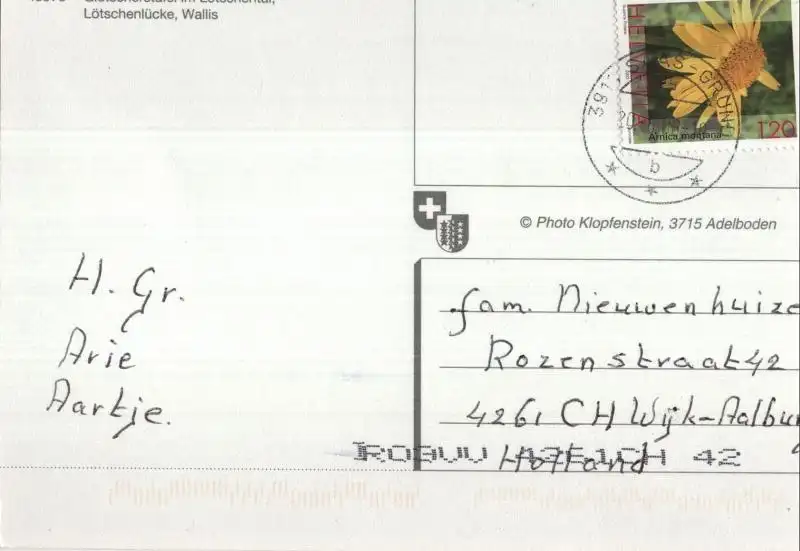 Lötschenlücke, Wallis
HELVETIA
Arnica montana
120
b
© Photo Klopfenstein, 3715 Adelboden
H. Gr.
Arie
Aartje.
fam. Nieuwenhuize
Rozenstraat 42
4261 CH Wijk-Aalbu
Holland
42